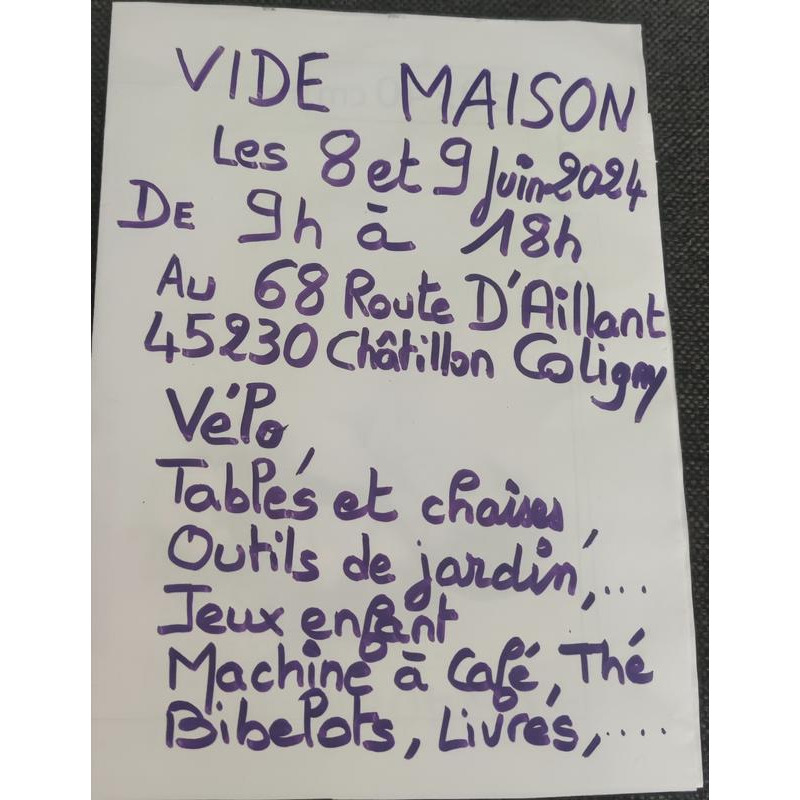 VIDE MAISON
Les 8 et 9 Juin 2024
DE 9h à 18h
Au 68 Route D'Aillant
45230 Châtillon Coligny
Vélo,
Tables et chaises,
Outils de jardin,...
Jeux enfant
Machine à Café, Thé
Bibelots, Livres,....